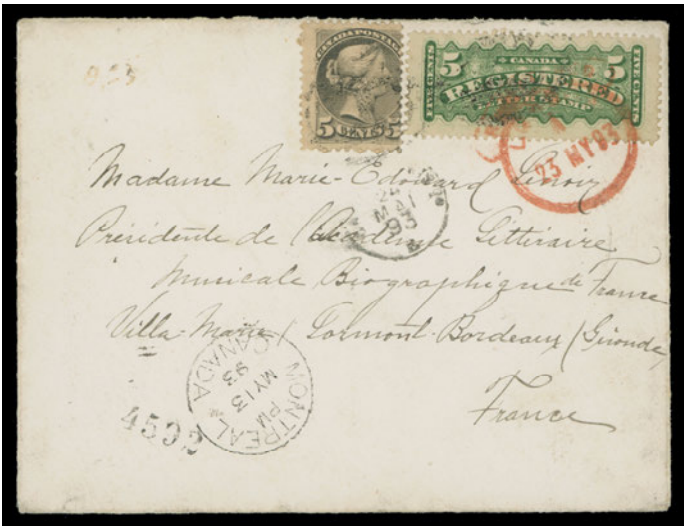 CANADA POSTAGE
5 CENTS 5
5 CANADA 5
FIVE CENTS REGISTERED FIVE CENTS
LETTER STAMP
23 MY 93
24
MAI
93
Madame Marie-Edouard Lenoir
Présidente de l'Académie Littéraire
Musicale Biographique de France
Villa-Marie / Lormont-Bordeaux / Gironde
France
MONTREAL CANADA
PM
MY 13
93